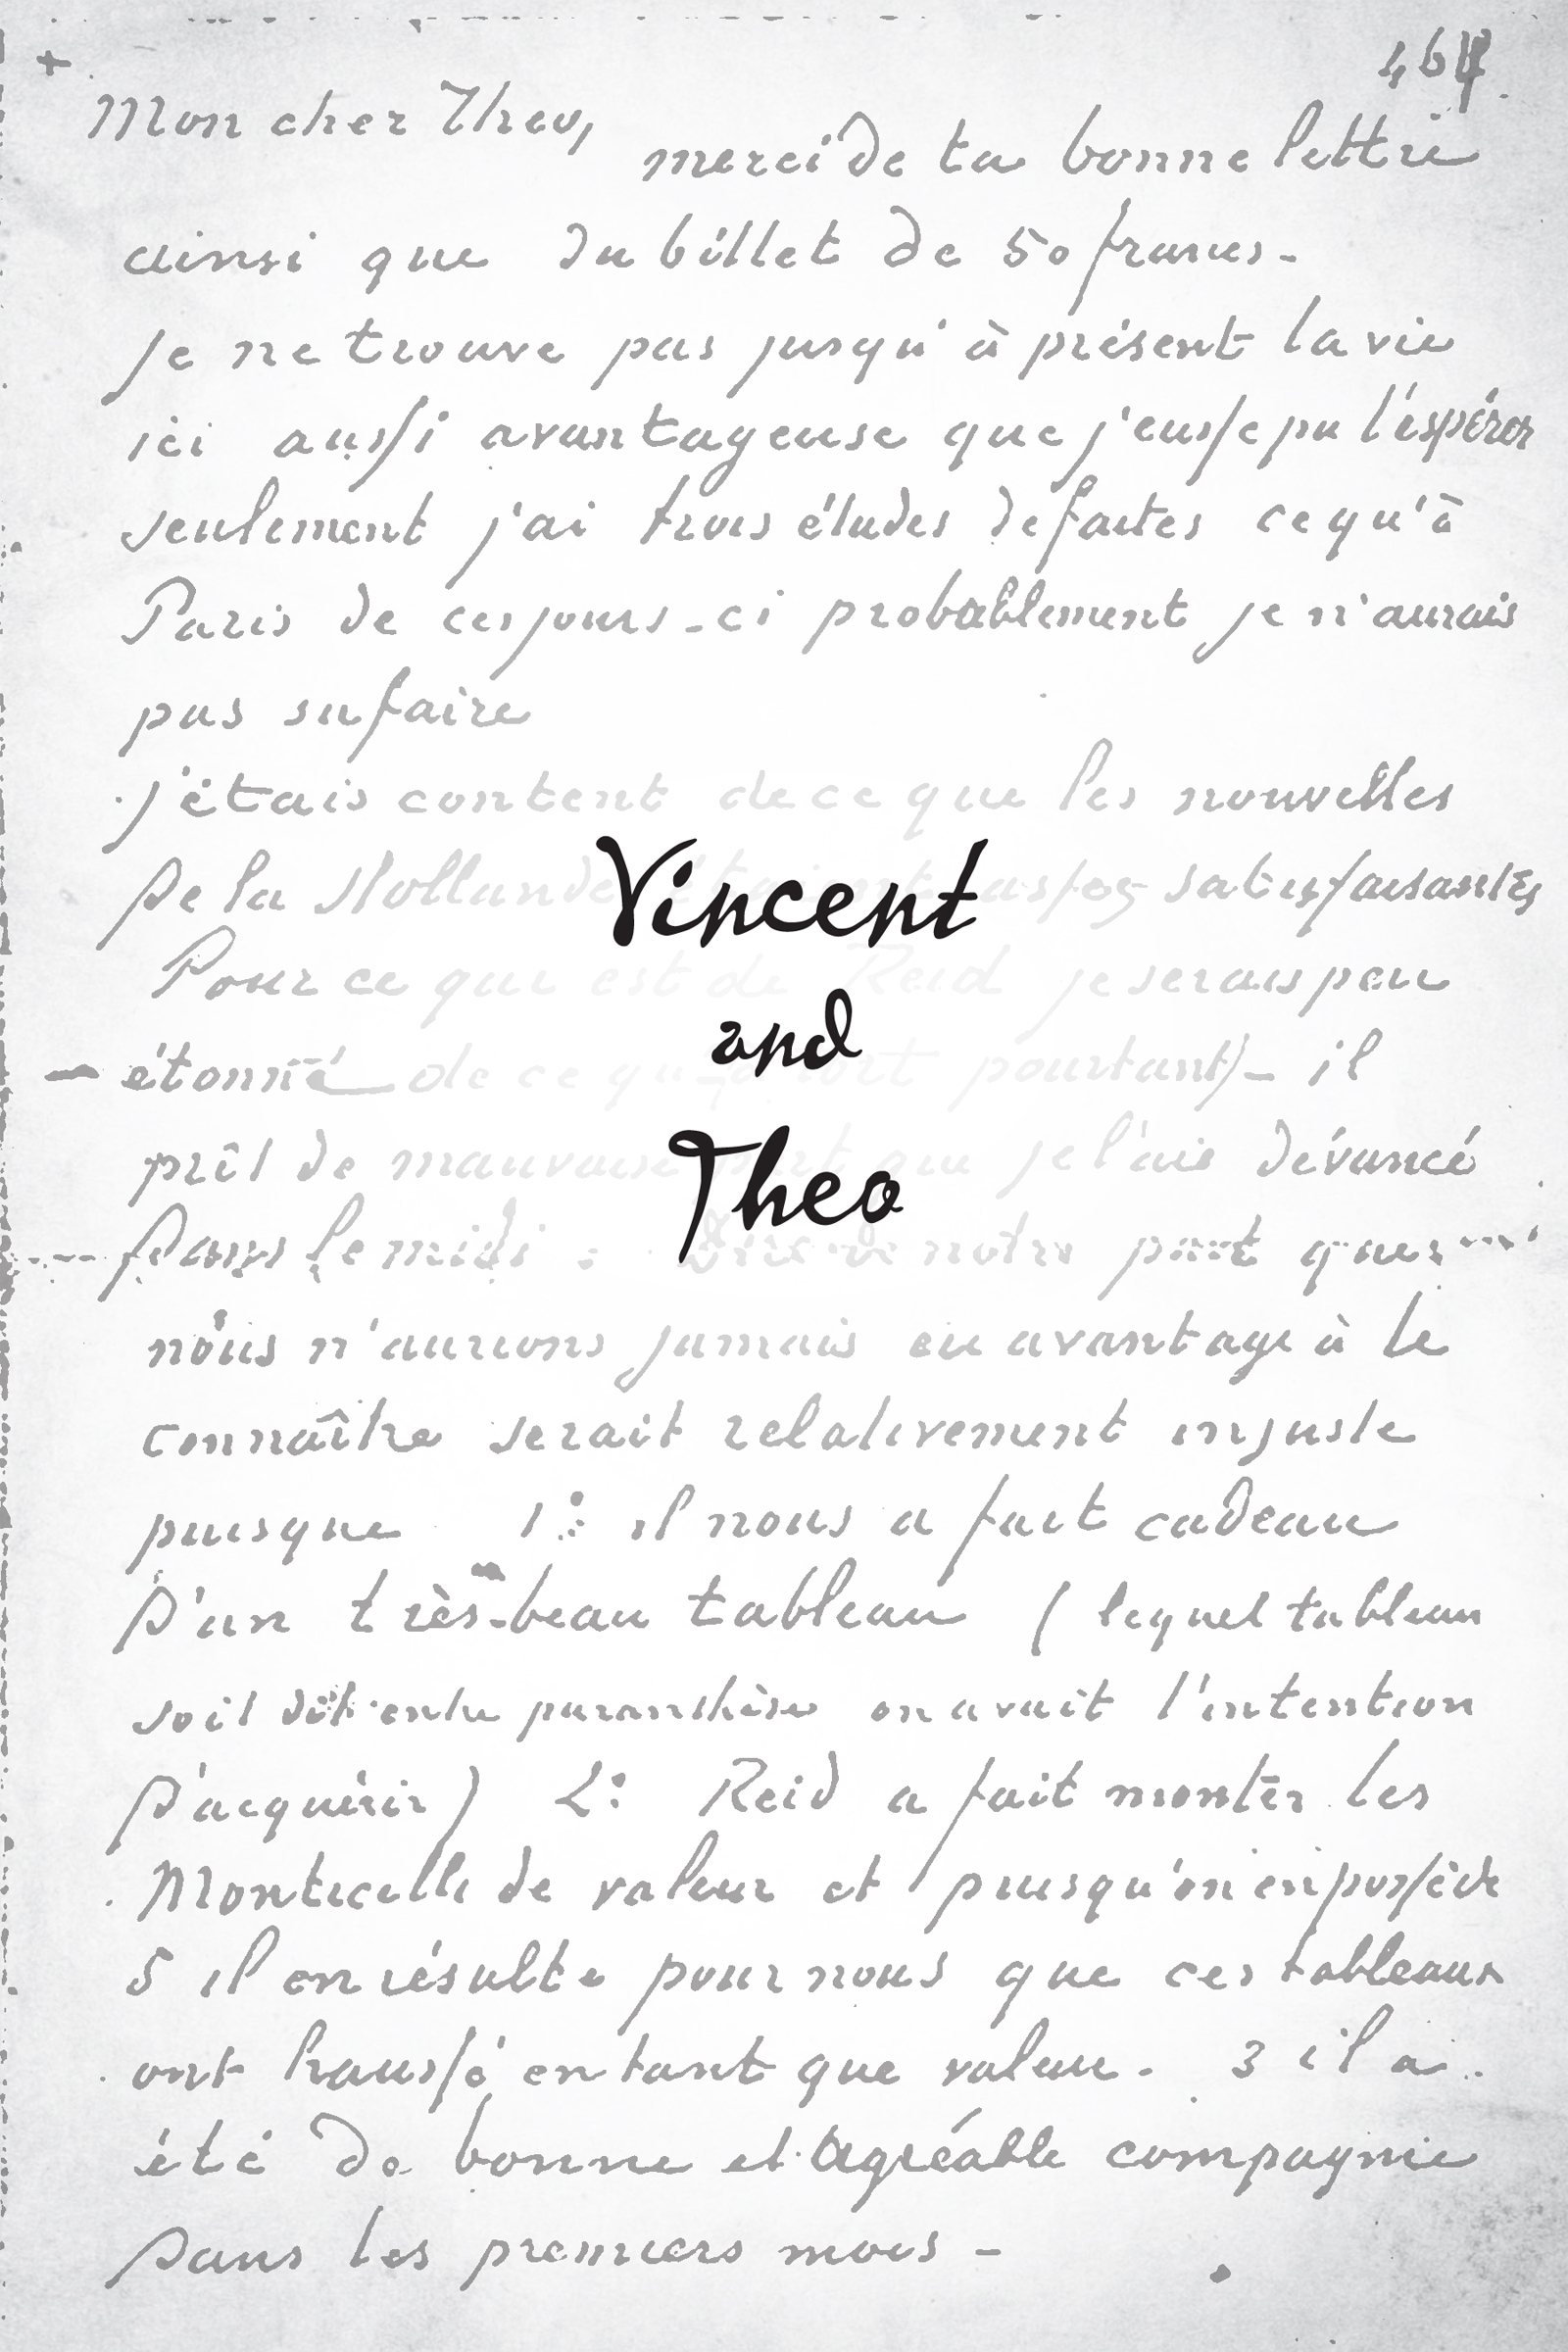 464
Mon cher Theo,
merci de ta bonne lettre
ainsi que du billet de 50 francs.-
Je ne trouve pas jusqu'à présent la vie
ici aussi avantageuse que j'eusse pu l'espérer
seulement j'ai trois études de faites ce qu'à
Paris de ces jours-ci probablement je n'aurais
pas su faire
j'étais content de ce que les nouvelles
de la Hollande étaient assez satisfaisantes
Vincent
Pour ce qui est de Reid je serais peu
and
étonné de ce que pourtant)- il
prît de mauvaise part que je l'aie dévancé
Theo
dans le midi. Dire de notre part que
nous n'aurions jamais eu avantage à le
connaître serait relativement injuste
puisque 1: il nous a fait cadeau
d'un très-beau tableau (lequel tableau
soit dit entre paranthèse on avait l'intention
d'acquérir) 2: Reid a fait monter les
Monticelli de valeur et puisqu'on en possède
5 il en résulte pour nous que ces tableaux
ont haussé en tant que valeur. 3 il a
été de bonne et agréable compagnie
dans les premiers mois -